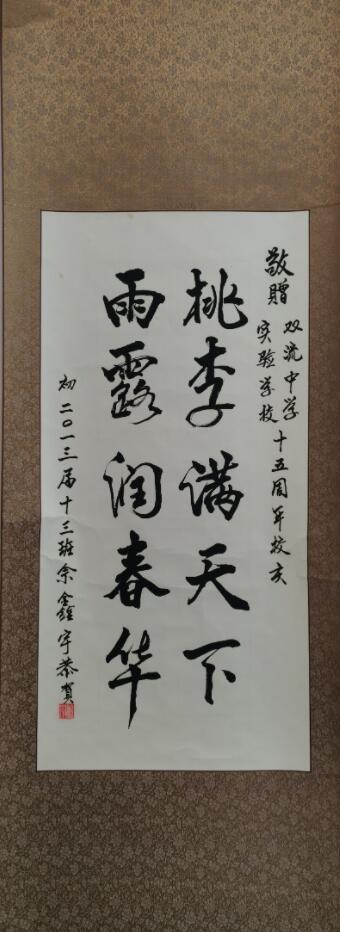 敬赠
双流中学
实验学校
十五周年校庆
桃李满天下
雨露润春华
初二〇一三届十三班余鑫宇恭贺